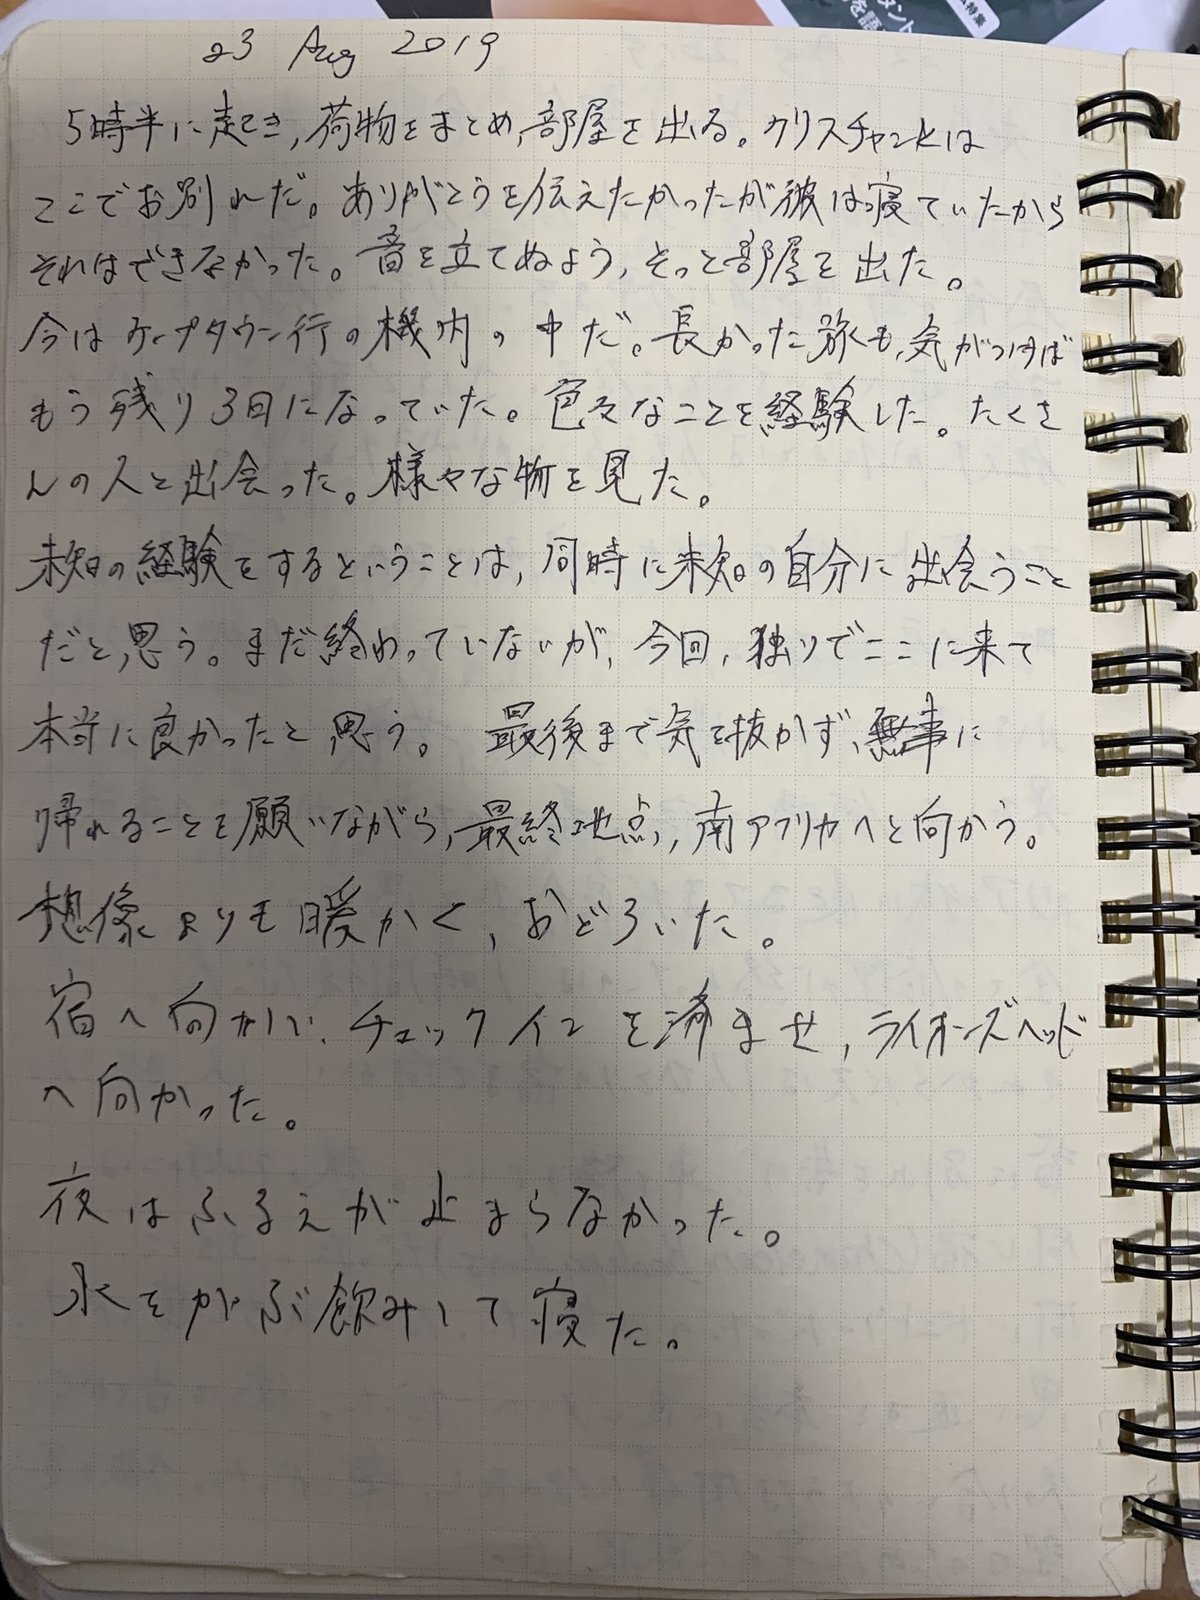 特集
タント
を語
23 Aug 2019
5時半に起き,荷物をまとめ,部屋を出る。クリスチャンとは
ここでお別れだ。ありがとうを伝えたかったが彼は寝ていたから
それはできなかった。音を立てぬよう,そっと部屋を出た。
今はケープタウン行の機内の中だ。長かった旅も,気がつけば
もう残り3日になっていた。色々なことを経験した。たくさ
んの人と出会った。様々な物を見た。
未知の経験をするということは,同時に未知の自分に出会うこと
だと思う。まだ終わっていないが,今回,独りでここに来て
本当に良かったと思う。 最後まで気を抜かず,無事に
帰れることを願いながら,最終地点,南アフリカへと向かう。
想像よりも暖かく,おどろいた。
宿へ向かい,チェックインを済ませ,ライオンズヘッド
へ向かった。
夜はふるえが止まらなかった。
水をがぶ飲みして寝た。